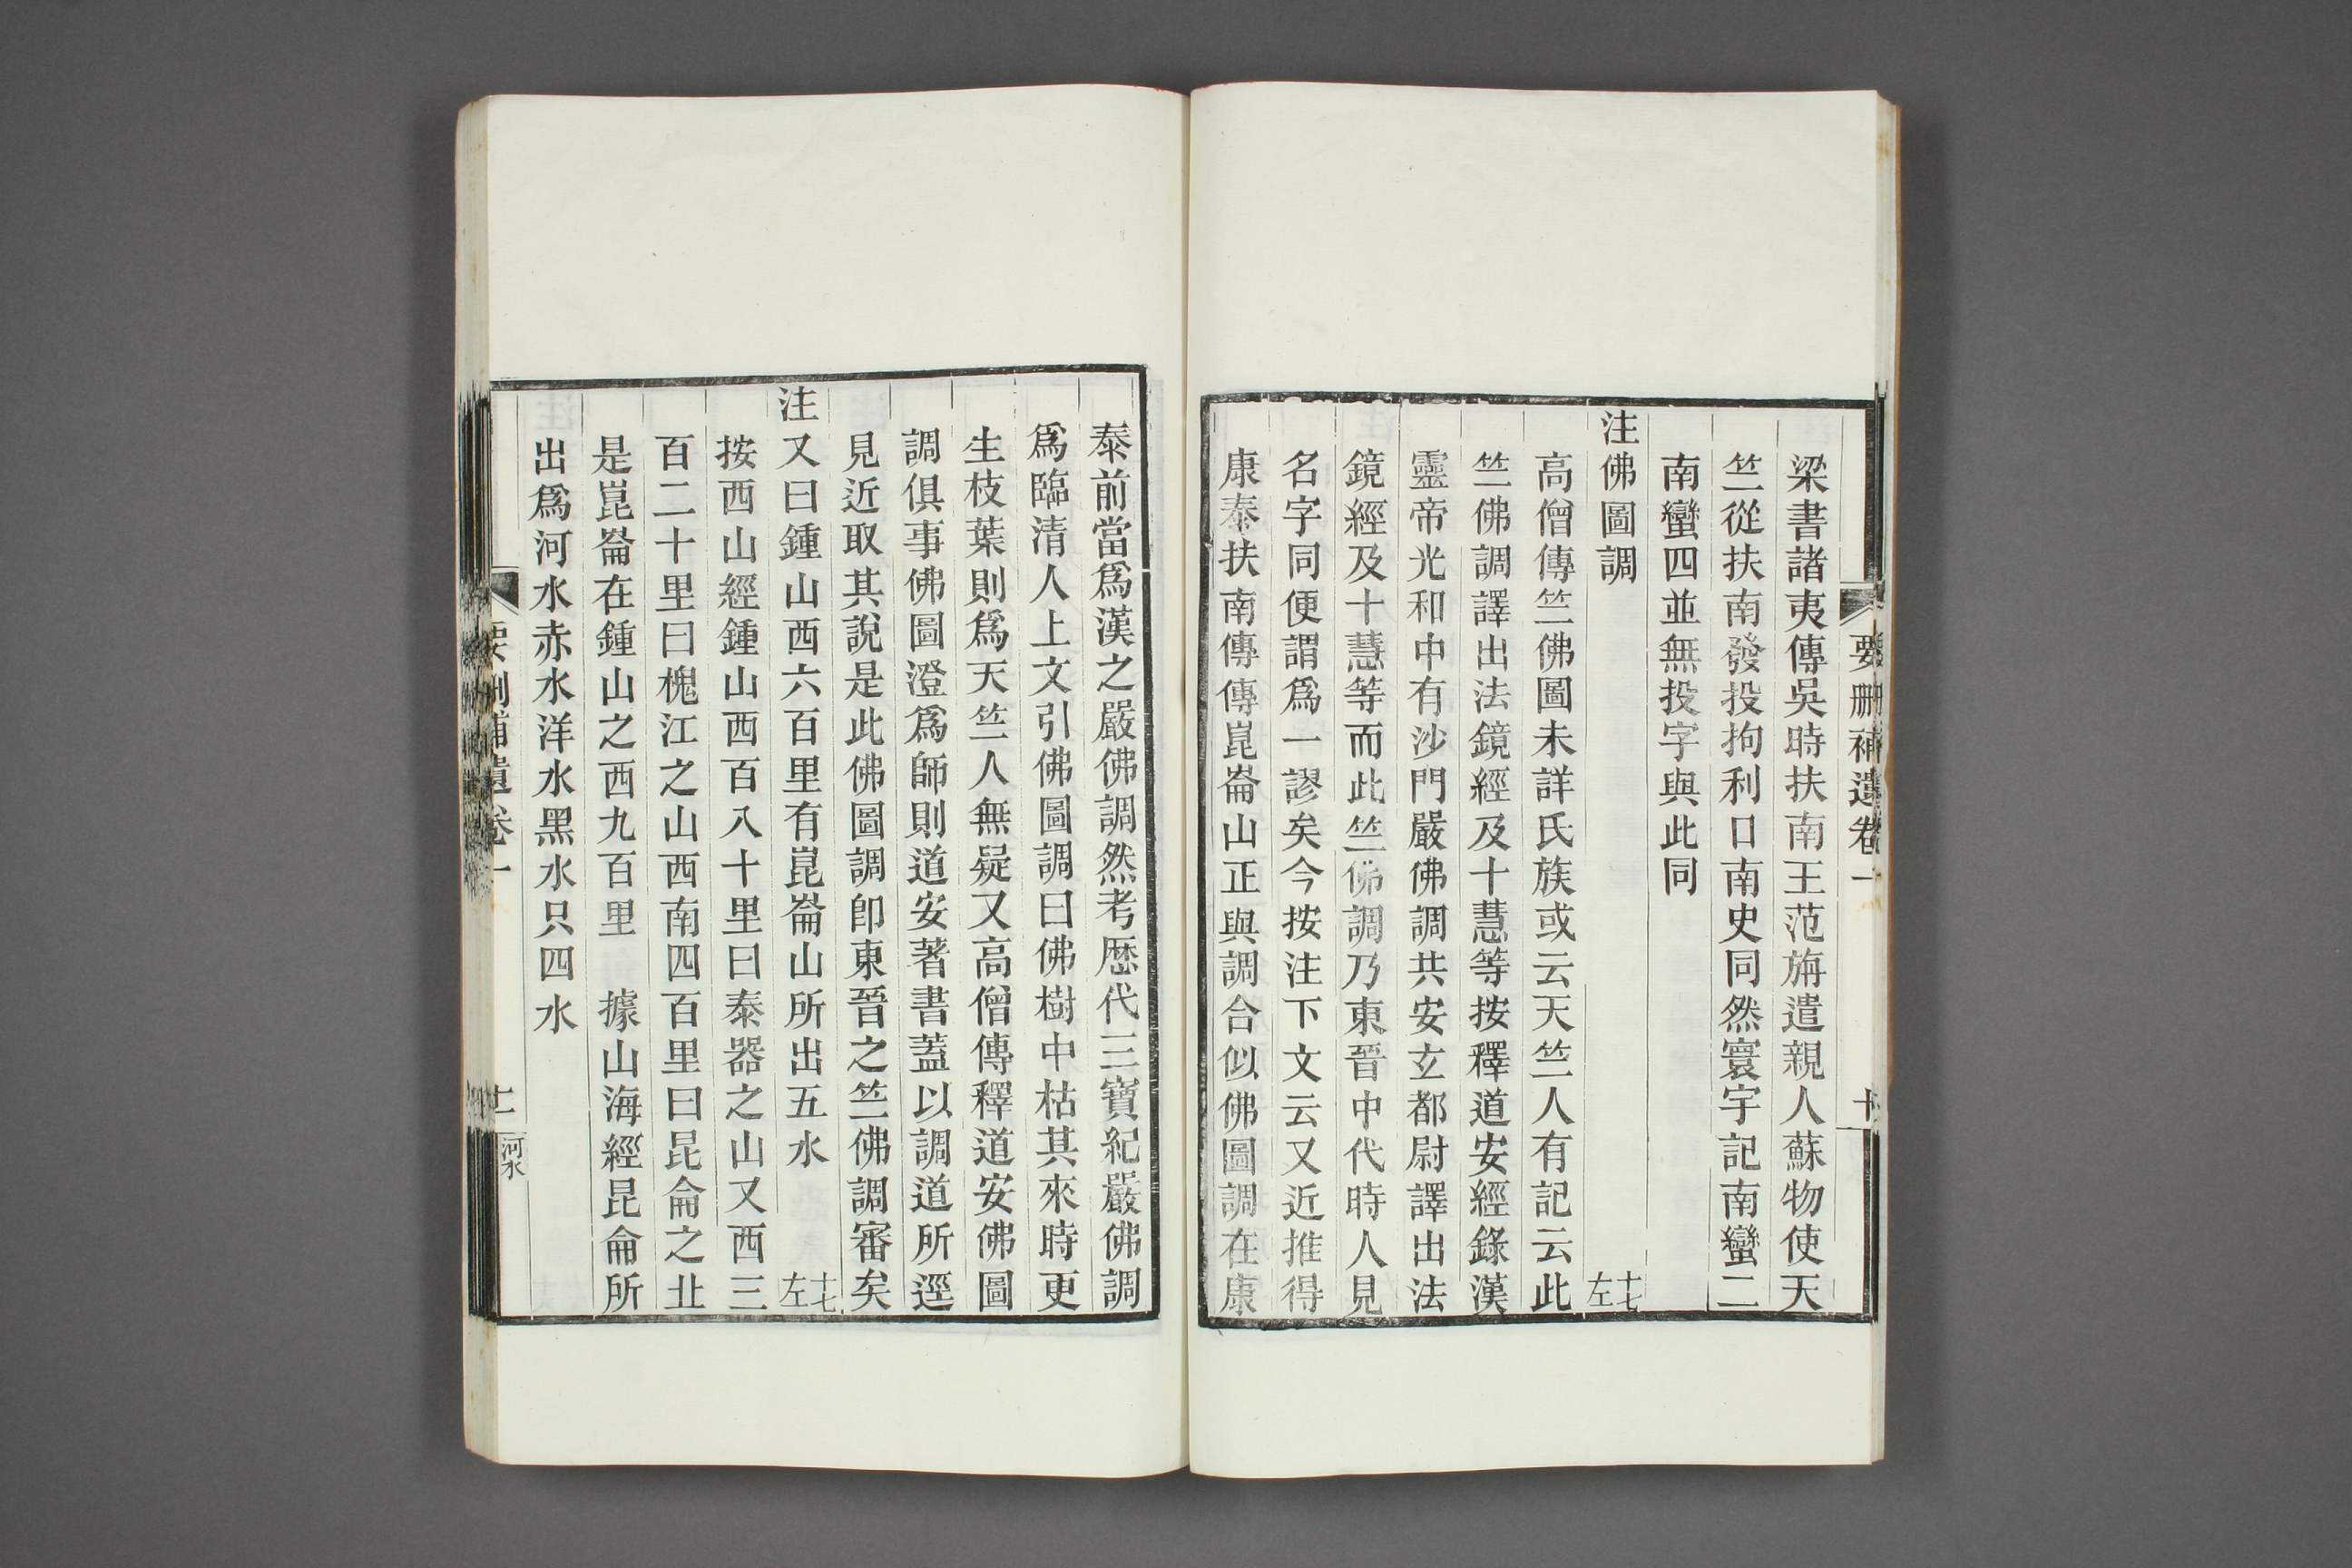 要刪補遺卷一
十
梁書諸夷傳吳時扶南王范旃遣親人蘇物使天
竺從扶南發投拘利口南史同然寰宇記南蠻二
南蠻四並無投字與此同
注佛圖調 十七左
高僧傳竺佛圖未詳氏族或云天竺人有記云此
竺佛調譯出法鏡經及十慧等按釋道安經錄漢
靈帝光和中有沙門嚴佛調共安玄都尉譯出法
鏡經及十慧等而此竺佛調乃東晉中代時人見
名字同便謂爲一謬矣今按注下文云又近推得
康泰扶南傳傳崑崙山正與調合似佛圖調在康
泰前當爲漢之嚴佛調然考歷代三寶紀嚴佛調
爲臨淸人上文引佛圖調曰佛樹中枯其來時更
生枝葉則爲天竺人無疑又高僧傳釋道安佛圖
調俱事佛圖澄爲師則道安著書蓋以調道所逕
見近取其說是此佛圖調卽東晉之竺佛調審矣
注又曰鍾山西六百里有崑崙山所出五水 十七左
按西山經鍾山西百八十里曰泰器之山又西三
百二十里曰槐江之山西南四百里曰昆侖之北
是崑崙在鍾山之西九百里 據山海經昆侖所
出爲河水赤水洋水黑水只四水
要刪補遺卷一
十一
河水